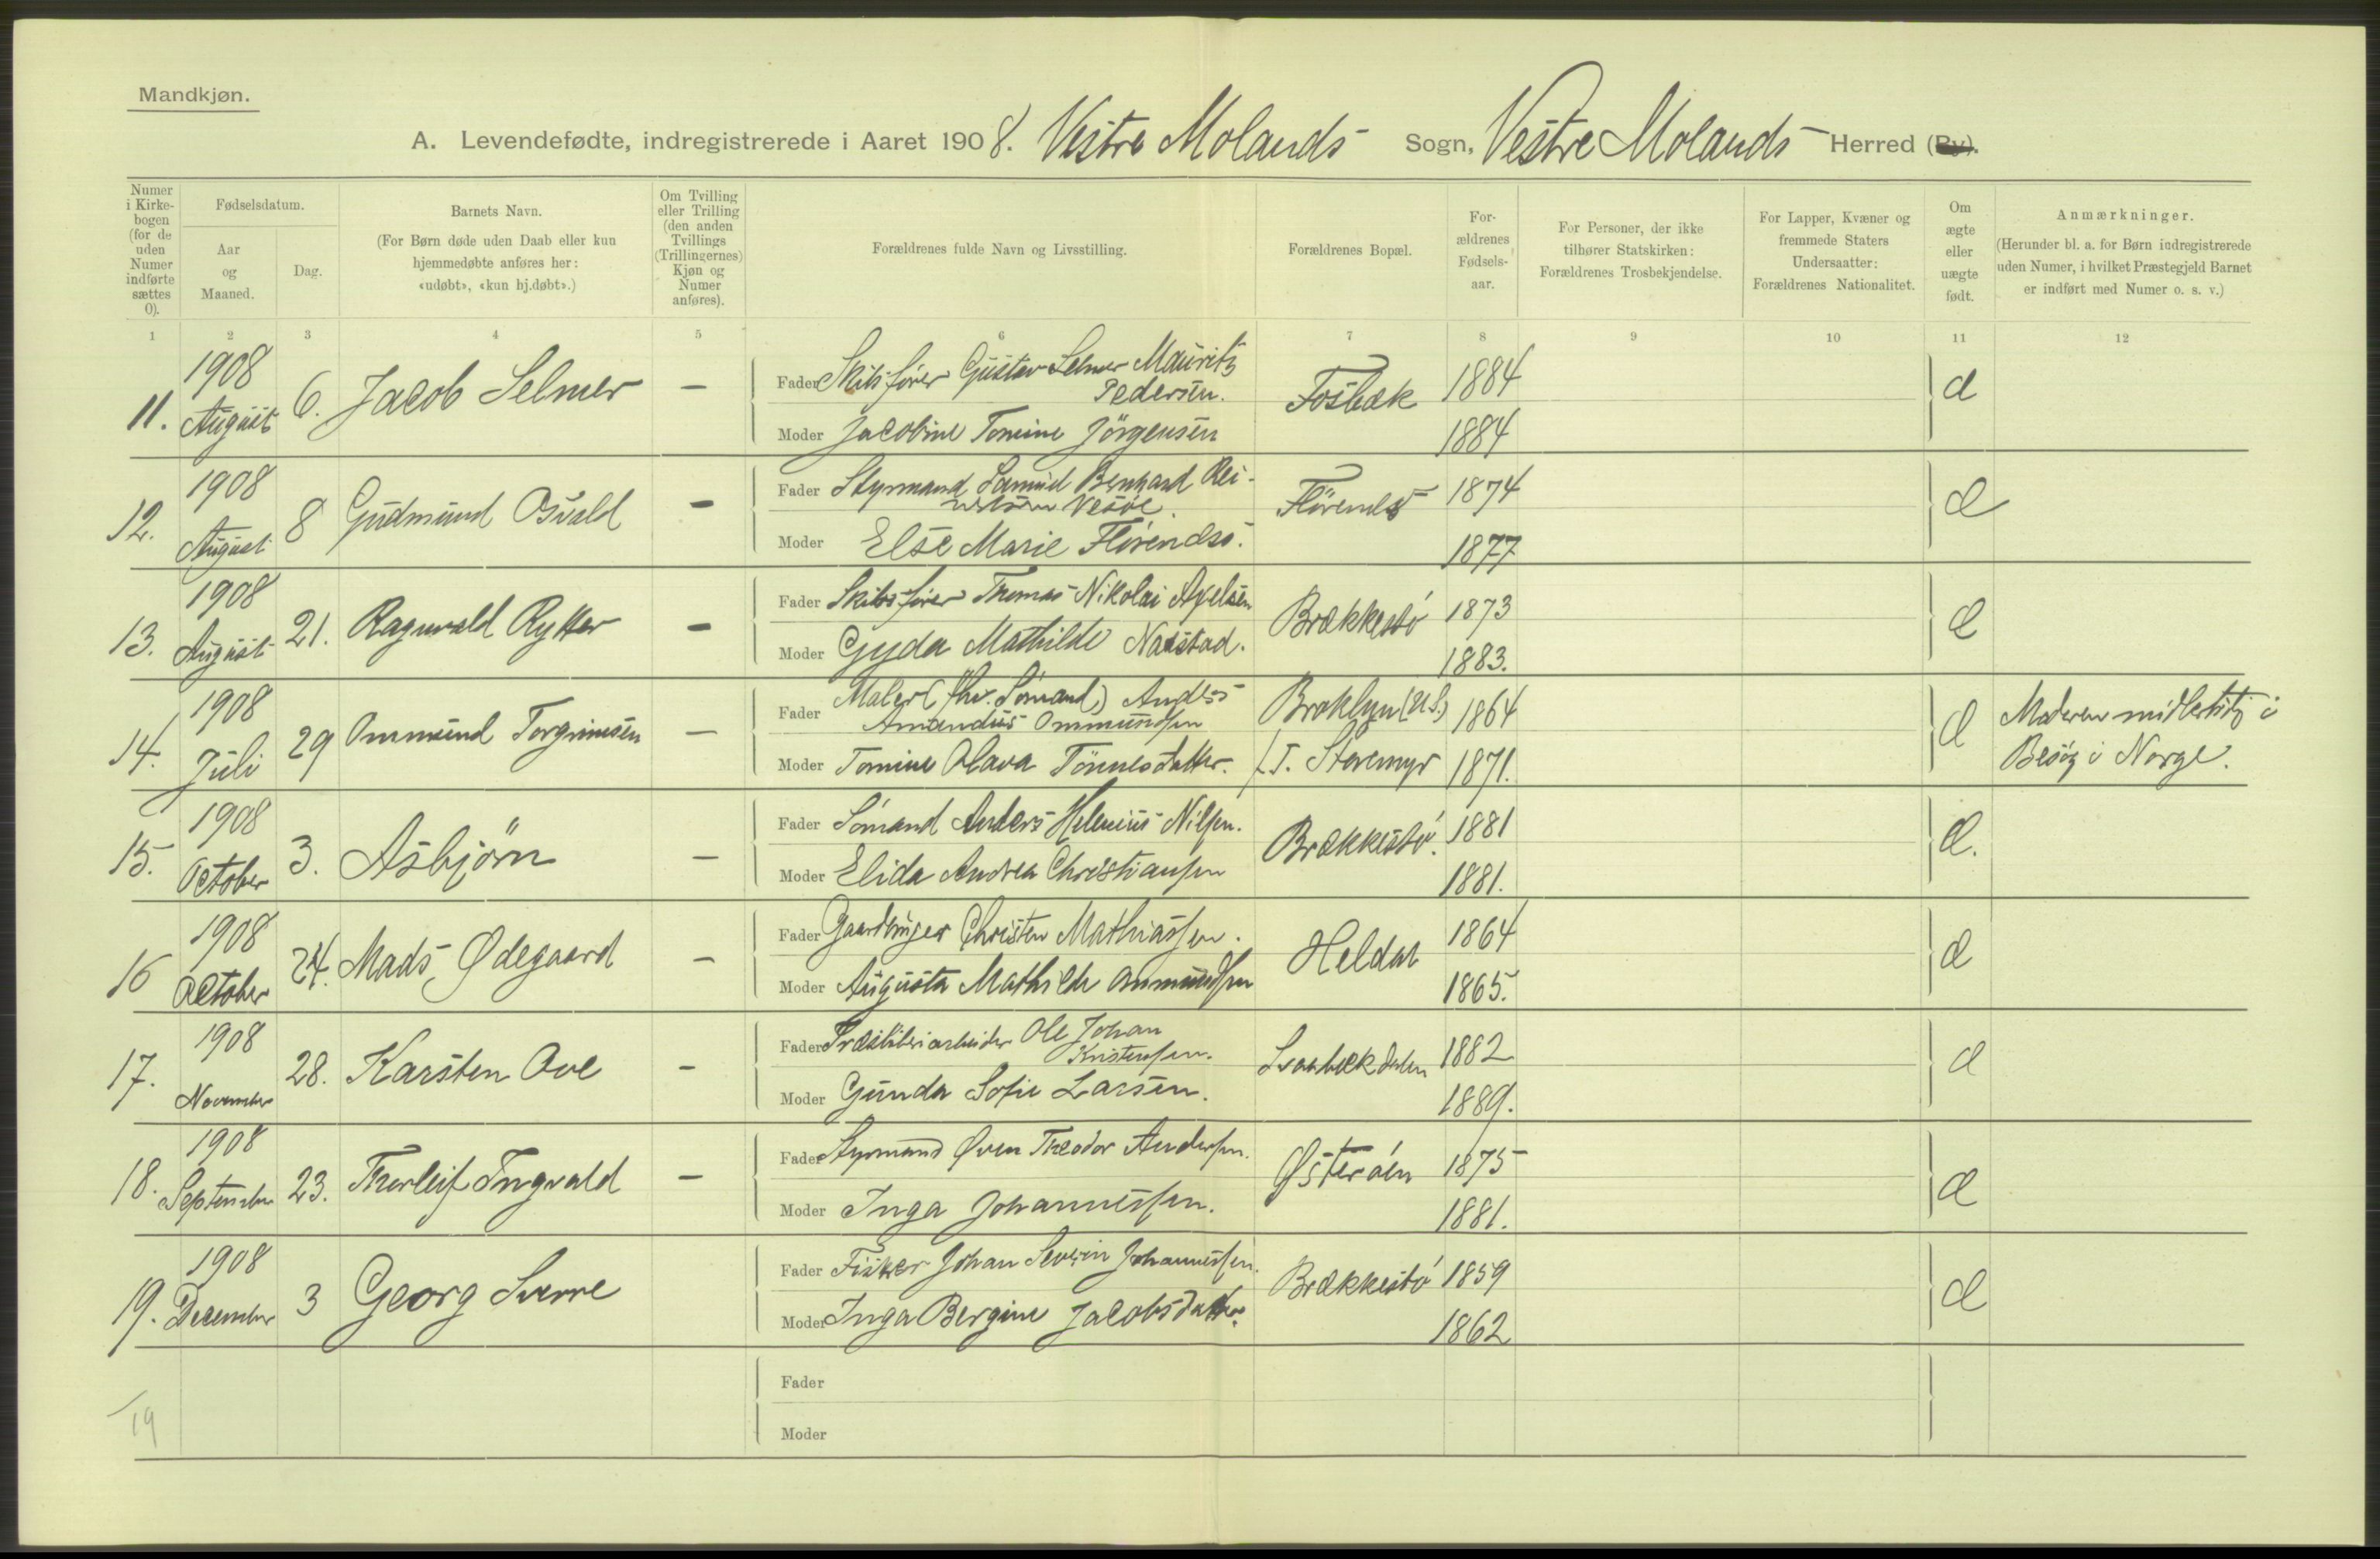 Mandkjøn.
A. Levendefødte, indregistrerede i Aaret 1908. Vestre Molands Sogn, Vestre Molands Herred (By).
Numer i Kirke-bogen (for de uden Numer indførte sættes 0).
Fødselsdatum.
Aar og Maaned.
Dag.
Barnets Navn.
(For Børn døde uden Daab eller kun hjemmedøbte anføres her: «udøbt», «kun hj.døbt».)
Om Tvilling eller Trilling (den anden Tvillings (Trillingernes) Kjøn og Numer anføres).
Forældrenes fulde Navn og Livsstilling.
Forældrenes Bopæl.
For-ældrenes Fødsels-aar.
For Personer, der ikke tilhører Statskirken: Forældrenes Trosbekjendelse.
For Lapper, Kvæner og fremmede Staters Undersaatter: Forældrenes Nationalitet.
Om ægte eller uægte født.
Anmærkninger.
(Herunder bl. a. for Børn indregistrerede uden Numer, i hvilket Præstegjeld Barnet er indført med Numer o. s. v.)
1 2 3 4 5 6 7 8 9 10 11 12
11. 1908 August 6. Jacob Selmer -
Fader Skibsfører Gustav Selmer Mauritz Pedersen. Fosbæk 1884 æ
Moder Jacobine Tomine Jörgensen 1884
12. 1908 August 8 Gudmund Osvald -
Fader Styrmand Samuel Bernhard Vesöe. 1874 æ
Moder Else Marie 1877
13. 1908 August 21. Ragnvald Rytter -
Fader Skibsfører Thomas Nikolai Axelsen Brækkestö 1873 æ
Moder Gyda Mathilde Narstad. 1883.
14. 1908 Juli 29 Ommund Torgrimsen -
Fader Maler (fhv. Sömand) Anders Amandus Ommundsen Broklyn (U.S.) 1864 æ Moderen midlertidig i
Moder Tomine Olava Tönnesdatter. f. T. Storemyr 1871. Besög i Norge.
15. 1908 October 3. Asbjörn -
Fader Sömand Anders Helenius Nilsen. Brækkestö. 1881 æ.
Moder Elida Andrea Christiansen 1881.
16 1908 October 24. Mads Ødegaard -
Fader Gaardbruger Christen Mathiassen. Heldal 1864 æ
Moder Augusta Mathilde Ommundsen 1865.
17. 1908 November 28. Karsten Ove -
Fader Træsliberiarbeider Ole Johan Kristensen. 1882 æ
Moder Gunda Sofie Larsen. 1889.
18. 1908 September 23. Thorleif Ingvald -
Fader Styrmand Theodor Andersen. Østeröen 1875 æ
Moder Inga Johannessen. 1881.
19. 1908 December 3 Georg Sverre
Fader Fisker Johan Severin Johannessen. Brækkestö 1859 æ
Moder Inga Bergine Jacobsdatter. 1862
Fader
19
Moder